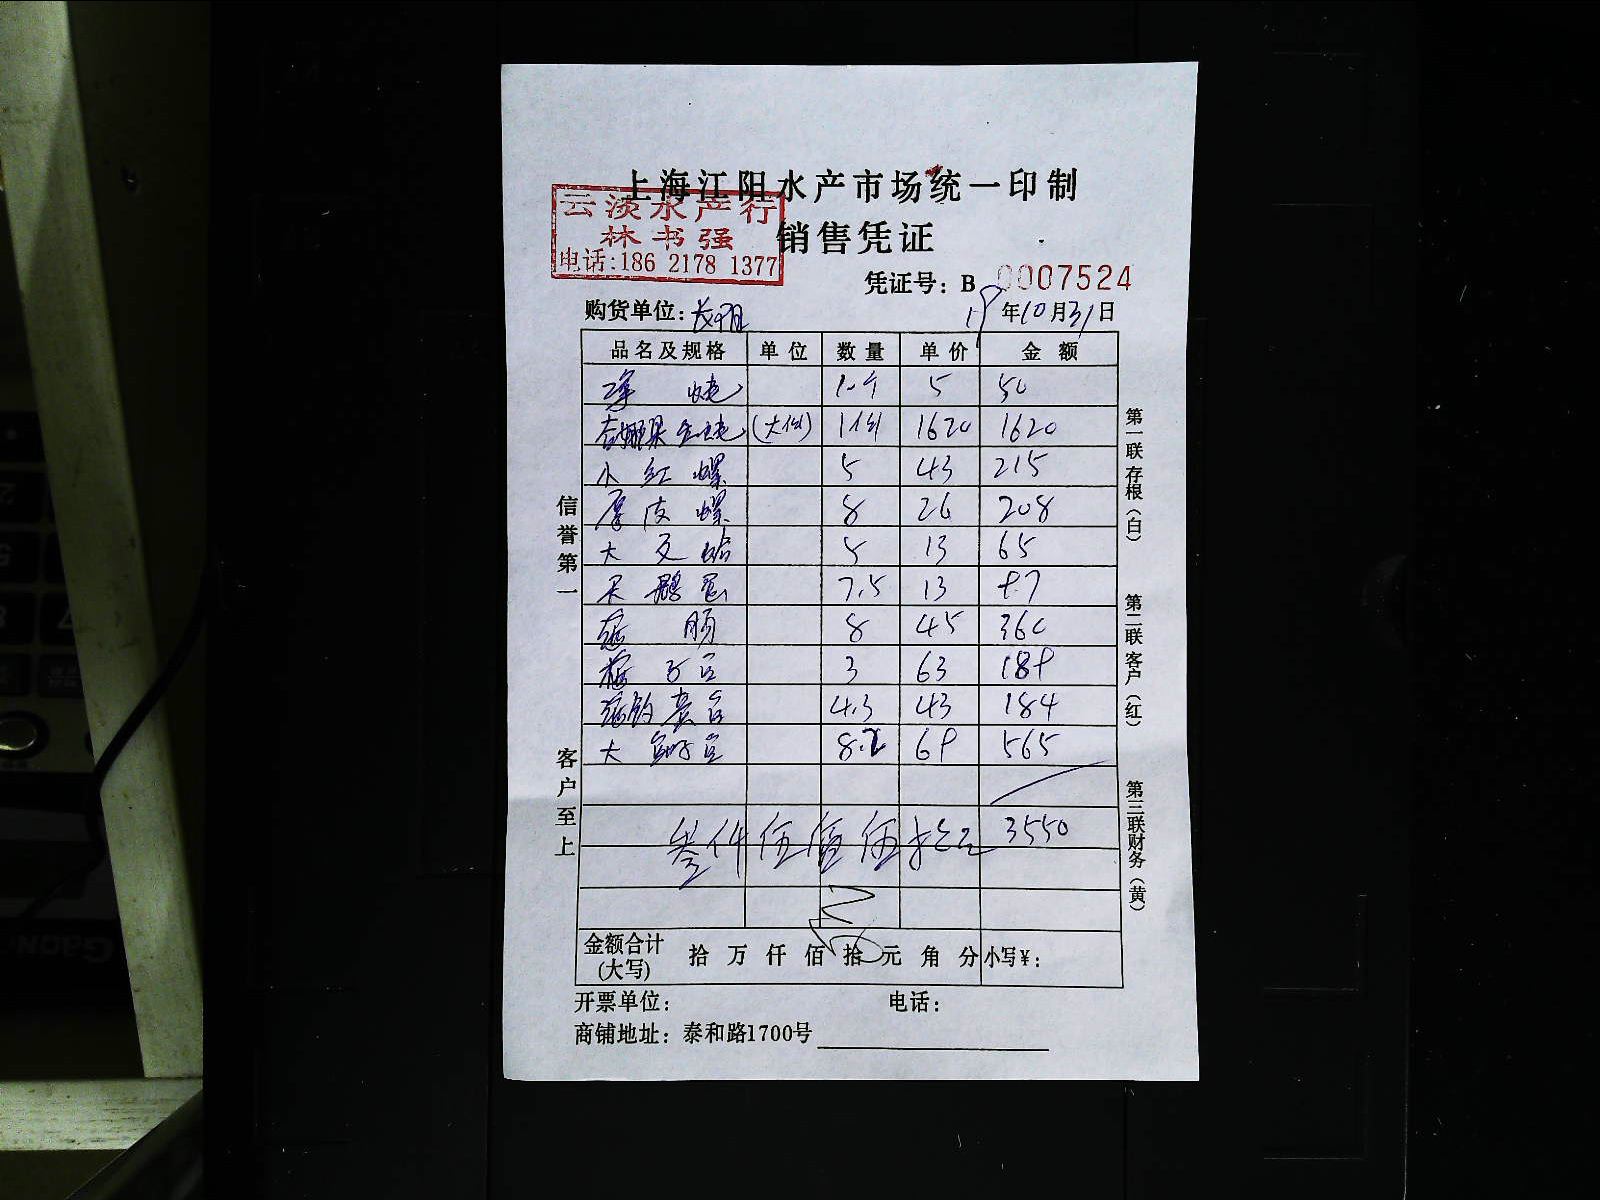 上海江阳水产市场统一印制
云淡水产行
林书强
电话:186 2178 1377
销售凭证
凭证号: B 0007524
购货单位:
19年10月31日
品名及规格 单位 数量 单价 金额
5 50
(大例) 1例 1620 1620
小红螺 5 43 215
厚皮螺 8 26 208
大文蛤 5 13 65
天鹅蛋 7.5 13 97
8 45 360
3 63 189
4.3 43 184
大 8.2 69 565
叁仟伍佰伍拾元 3550
金额合计(大写) 拾 万 仟 佰 拾 元 角 分 小写¥:
开票单位: 电话:
商铺地址: 泰和路1700号
信誉第一
客户至上
第一联存根(白)
第二联客户(红)
第三联财务(黄)